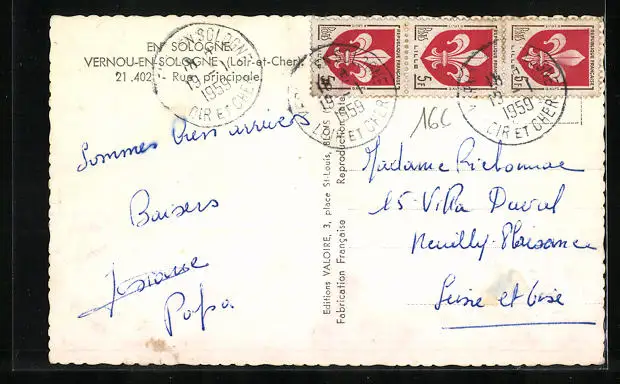 EN SOLOGNE
VERNOU-EN-SOLOGNE (Loir-et-Cher)
21.402 - Rue principale.
Sommes bien arrivés
Baisers
Josiane
Papa
Editions VALOIRE, 3, place St-Louis, BLOIS
Fabrication Française Reproduction
POSTES 5F LILLE REPUBLIQUE FRANÇAISE
5F LILLE REPUBLIQUE FRANÇAISE
POSTES 5F LILLE REPUBLIQUE FRANÇAISE
EN SOLOGNE 18 1959 LOIR ET CHER
18 1959 ET CHER
18 1959 LOIR ET CHER
16C
Madame
15 Villa Duval
Neuilly-Plaisance
Seine et Oise